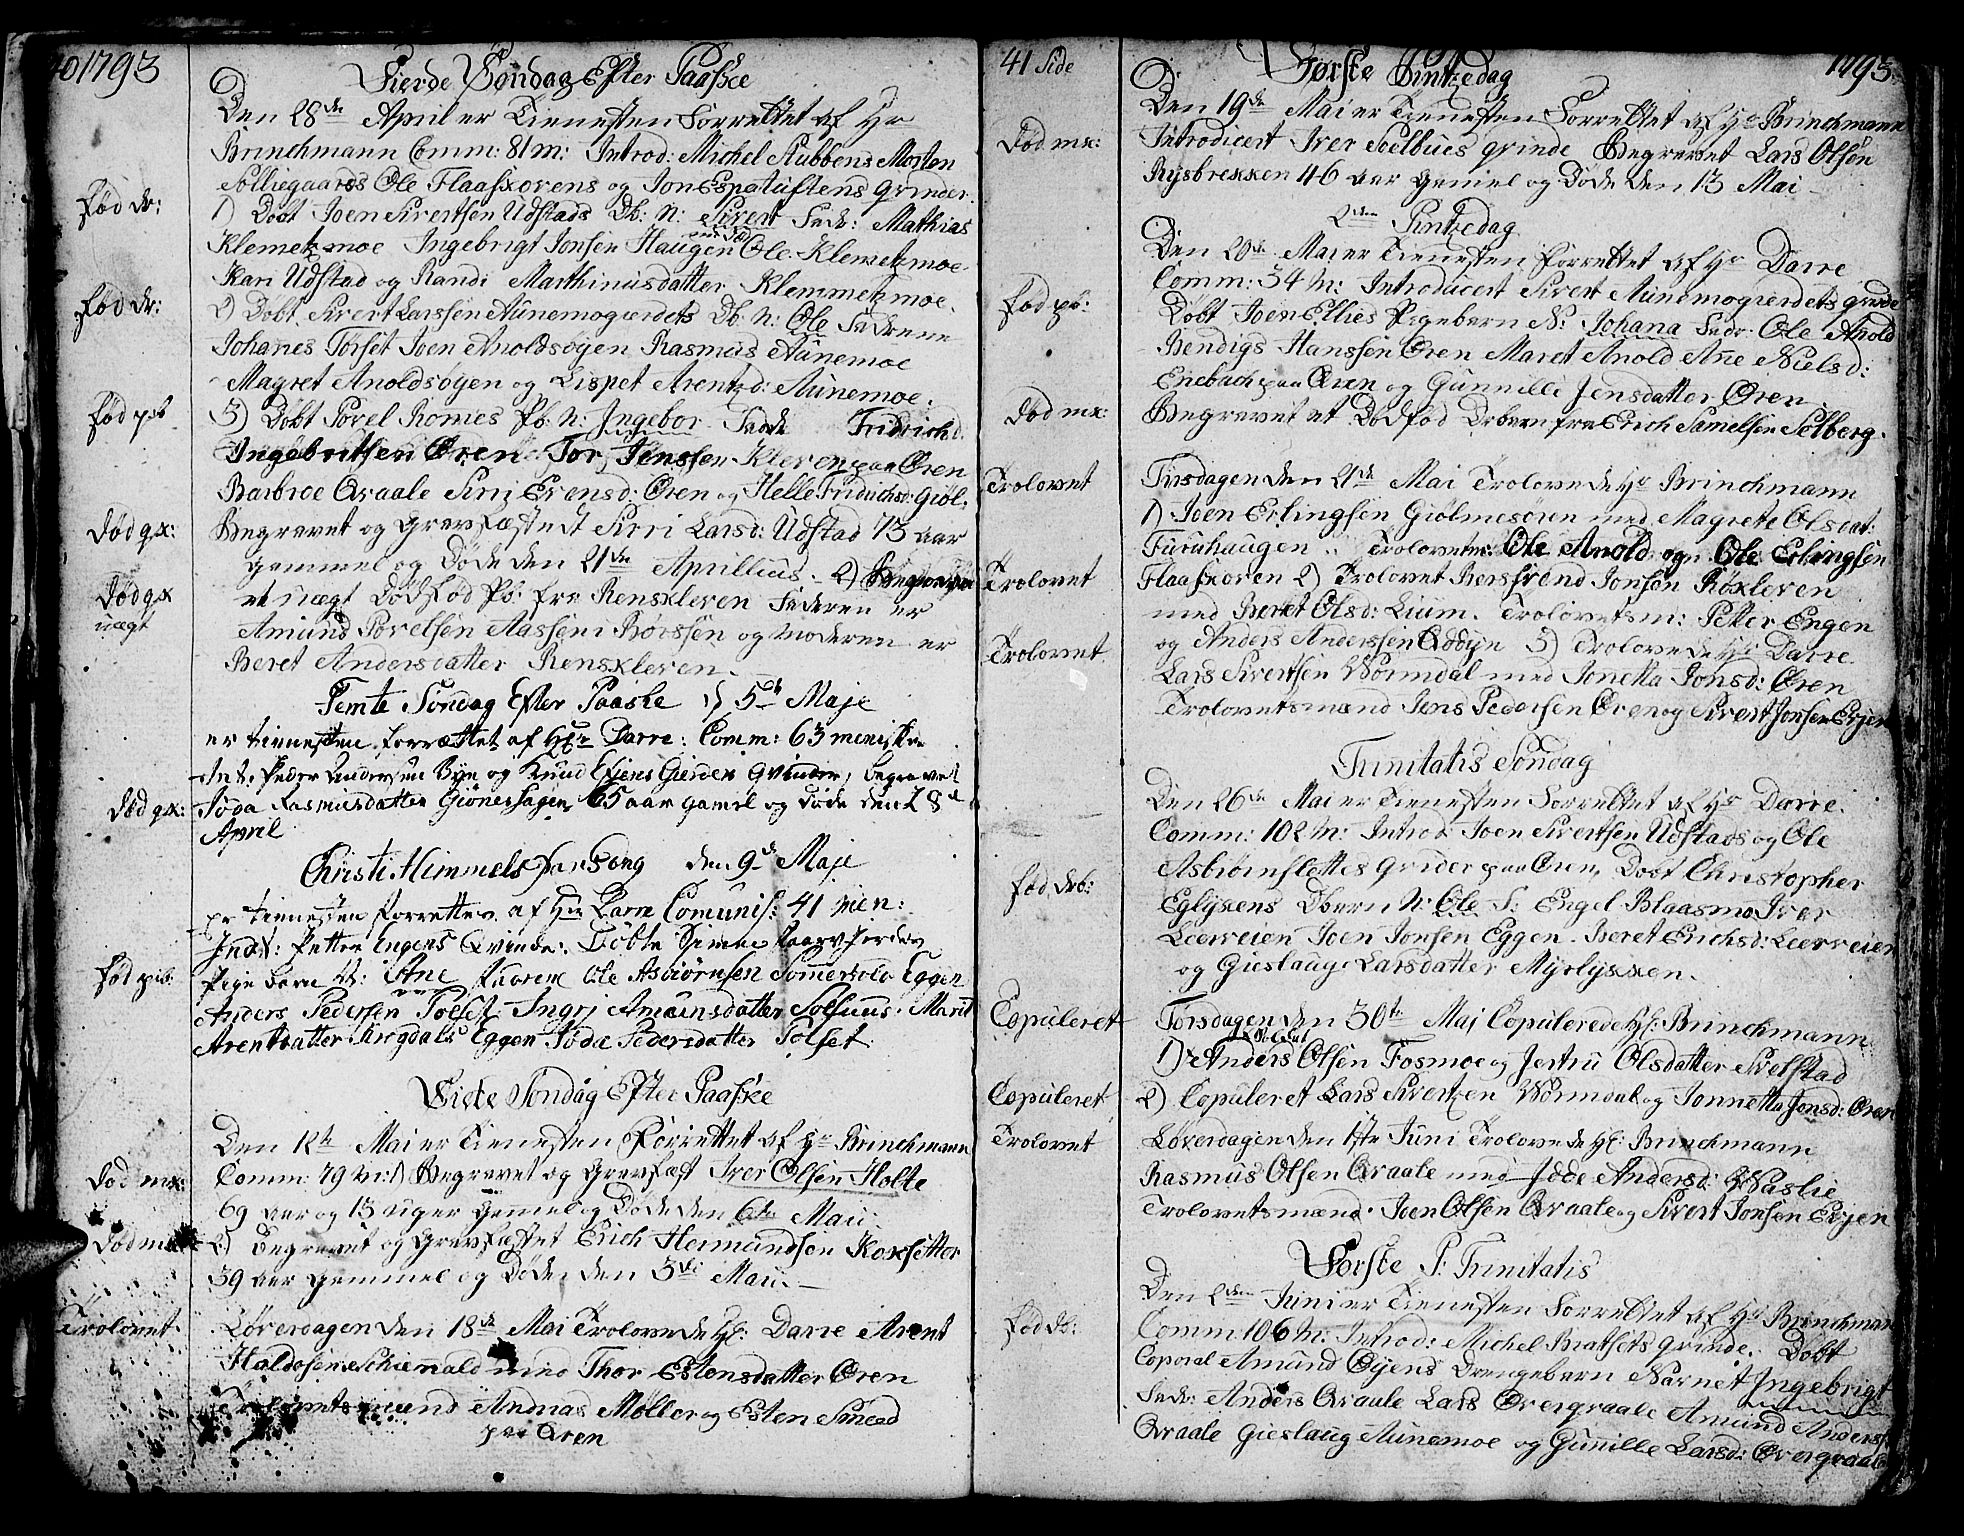 40 1793
Fierde Søndag Efter Paaske
Den 28de April er Tienesten Forrettet af Hr
Brinchmann Comm: 81 m: Introd: Michel Stubbens Morten
Solliegaards Ole Flaaskorens og Jon Espatuftens qvinder.
Fød dr:
1) Døbt Joen Sivertsen Udstads Db: N: Sivert Fadr: Mathias
Klemetzmoe Ingebrigt Jonsen Haugen Ole Klemetzmoe
Kari Udstad og Randi Marthinusdatter Klemmetzmoe.
Fød dr:
2) Døbt Sivert Larssen Aunemogierdets Db: N: Ole Fadrene
Johanes Torset Joen Anoldsøyen Rasmus Aunemoe
Magret Anoldsøyen og Lispet Arentzd: Aunemoe.
Fød pb
3) Døbt Povel Romes Pb: N: Ingebor Fadr Fridrich
Ingebritsen Øren Tor Jenssen Kleven paa Øren
Barbroe Qvaale Siri Evensd: Øren og Helle Fridrichsd: Giøl.
Død qx:
Begravet og Gravfæstedt Sirri Larsd: Udstad 73 aar
gammel og Døde den 21de Aprillius. 2)
Død qx
uægt
et uægt Dødfød Pb: fra Rensxleven Faderen er
Amund Povelsen Aassen i Børssen og Moderen er
Beret Andersdatter Rensxleven.
Femte Søndag Efter Paaske d 5te Maje
er tienesten forrættet af Hr Darre: Comm: 63 menisker
Int: Peder Andersen Bye og Knud Evjens Gierden Qvinder, begravet
Død qx:
Føda Rasmusdatter Giønershagen 65 aar gamel og døde den 28de
April
Christi Himmelsfars Dag den 9de Maje
er tiennesten forrettet af Hr Darre Comunis: 41 men:
Int: Petter Engens Qvinde: Døbte Simen
Fød pib:
Pige barn N: Ane Faderne Ole Asbiørnsen Somervold Eggen
Anders Pedersen Tolset Ingrj Amundsdatter Solsnus Marit
Arentsdatter Krogdals Eggen Føda Pedersdatter Tolset
Siete Søndag Efter Paaske
Den 12te Mai er Tienesten Forrettet af Hr Brinchmann
Død mx:
Comm: 79 m: 1) Begravet og Gravfæst Iver Olsen Holte
69 aar og 13 uger gamel og Døde den 6te Maii.
Død mx
2) Begravet og Gravfæstet Erich Hermundsen Koxsetter
39 aar gammel og Døde den 3de Maii.
Trolovet
Løverdagen den 18de Mai Trolovede Hr: Darre Arent
Haldosen Schienald med Thor Estensdatter Øren
Trolovetsmænd Andrias Møller og Esten Smed
paa Øren
41 Side
1793.
Første Pintzedag
Den 19de Mai er Tienesten Forrettet af Hr Brinchmann
Død mx:
Introducert Iver Soelbues qvinde Begravet Lars Olsen
Rysbrekken 46 aar gamel og Døde den 13 Mai
2den Pintzedag
Den 20de Mai er Tienesten Forrettet af Hr Darre
Comm: 34 M: Introducert Sivert Aunemogierdets qvinde
Fød pb:
Døbt Joen Ellies Pigebarn N: Johana Fadr: Ole Anold
Bendigs Hanssen Øren Maret Anold Ane Nielsd:
Enebach paa Øren og Gunnille Jensdatter Øren.
Død mx:
Begravet et Dødfød Drbarn fra Erich Samelsen Solberg.
Trolovet
Tirsdagen den 21de Mai Trolovede Hr Brinchmann
1) Joen Erlingsen Giølmesøren med Magrete Olsdat:
Furuhaugen. Trolovetm: Ole Anold og Ole Erlingsen
Trolovet
Flaaskoren 2) Trolovet Børsfvend Jonsen Røxleven
med Beret Olsd: Lium. Trolovetsm: Petter Engen
Trolovet
og Anders Anderssen Oddyn 3) Trolovede Hr Darre
Lars Sivertsen Wormdal med Jonetta Jonsd: Øren
Trolovetsmænd Jens Pedersen Øren og Sivert Jonsen Evjen
Trinitatis Søndag
Den 26de Mai er Tienesten Forrettet af Hr Darre.
Comm: 102 M: Introd: Joen Sivertsen Udstads og Ole
Asbiørnslettes qvinder paa Øren. Døbt Christopher
Fød drb:
Eglyxens Dbarn N: Ole F: Engel Blaasmo Iver
Leerveien Joen Jonsen Eggen. Beret Erichsd: Leerveien
og Gieslaug Larsdatter Myrlyxxen.
Copuleret
Torsdagen den 30te Maj Copulerede Hr: Brinchmann
1) Anders Olsen Fosmoe og Jertru Olsdatter Svelstad
Copuleret
2) Copuleret Lars Sivertzen Wormdal og Jonnetta Jonsd: Øren
Trolovet
Løverdagen den 1ste Juni Trolovede Hr: Brinchmann
Rasmus Olsen Qvaale med Jøde Andersd: Waslie
Trolovetsmænd Joen Olsen Qvaale og Sivert Jonsen Evjen
Første P: Trinitatis
Den 2den Juni er Tienesten Forrettet af Hr Brinchman
Fød db:
Comm: 106 M: Introd: Michel Bratsets qvinde. Døbt
Coporal Amund Evjens Drengebarn Navnet Ingebrigt
Fadr: Anders Qvaale Lars Øverqvaale Amund Anders:
Qvaale Gieslaug Aunemoe og Gunnille Larsd: Øverqvaale